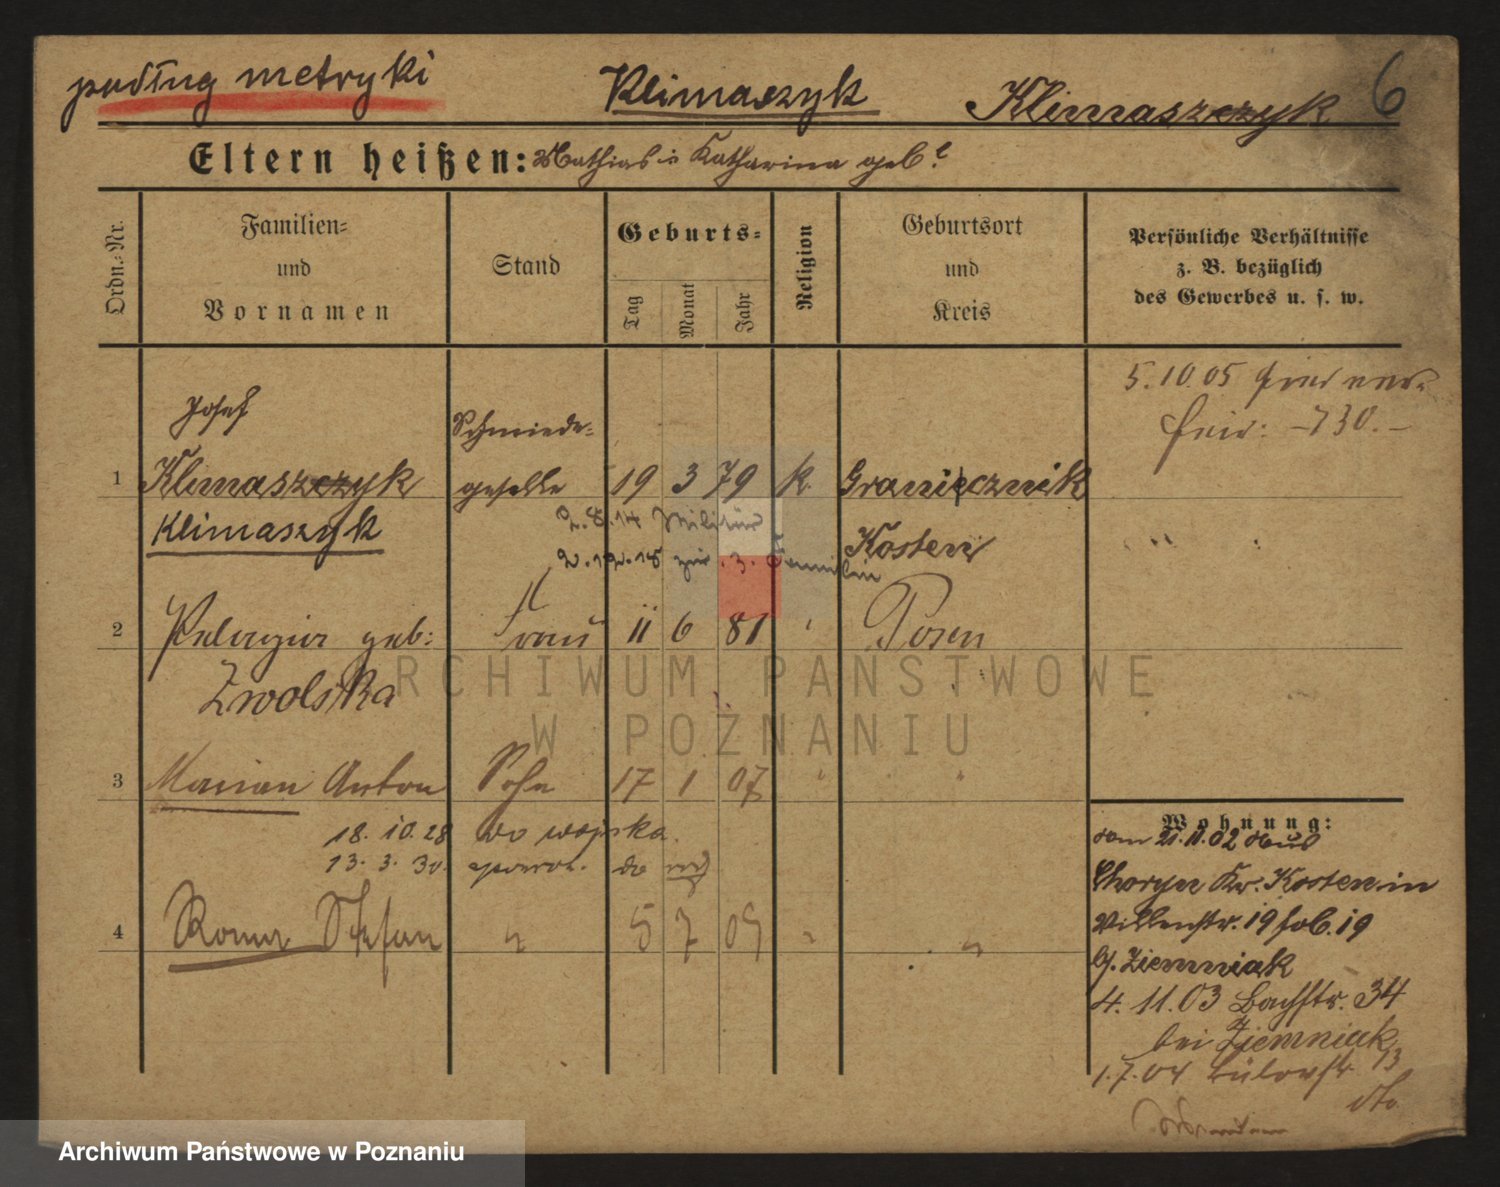 podług metryki Klimaszyk Klimaszczyk 6
Eltern heißen: Mathias u Katharina geb. ?
Ordn.-Nr.
Familien-
und
Vornamen
Stand
Geburts-
Tag
Monat
Jahr
Religion
Geburtsort
und
Kreis
Persönliche Verhältnisse
z. B. bezüglich
des Gewerbes u. s. w.
5.10.05
730.-
Josef
Schmiede-
1 Klimaszczyk geselle 19 3 79 k. Graniecznik
Klimaszyk
2.8.14 Militär
Kosten
2.12.18 zur Familie
2 Pelagia geb: Frau 11 6 81 " Posen
Zwolska
3 Marian Anton Sohn 17 1 07 " "
18. 10. 28 do wojska.
13. 3. 30. powrot. do
4 Roman Stefan " 5 7 09 " "
Wohnung:
vom 21.11.02 aus
Choryn Kr. Kosten in
19
b. Ziemniak
4. 11.03 Bachstr. 34
bei Ziemniak
1.7.04 Bülowstr. 13
dto
ARCHIWUM PAŃSTWOWE
W POZNANIU
Archiwum Państwowe w Poznaniu